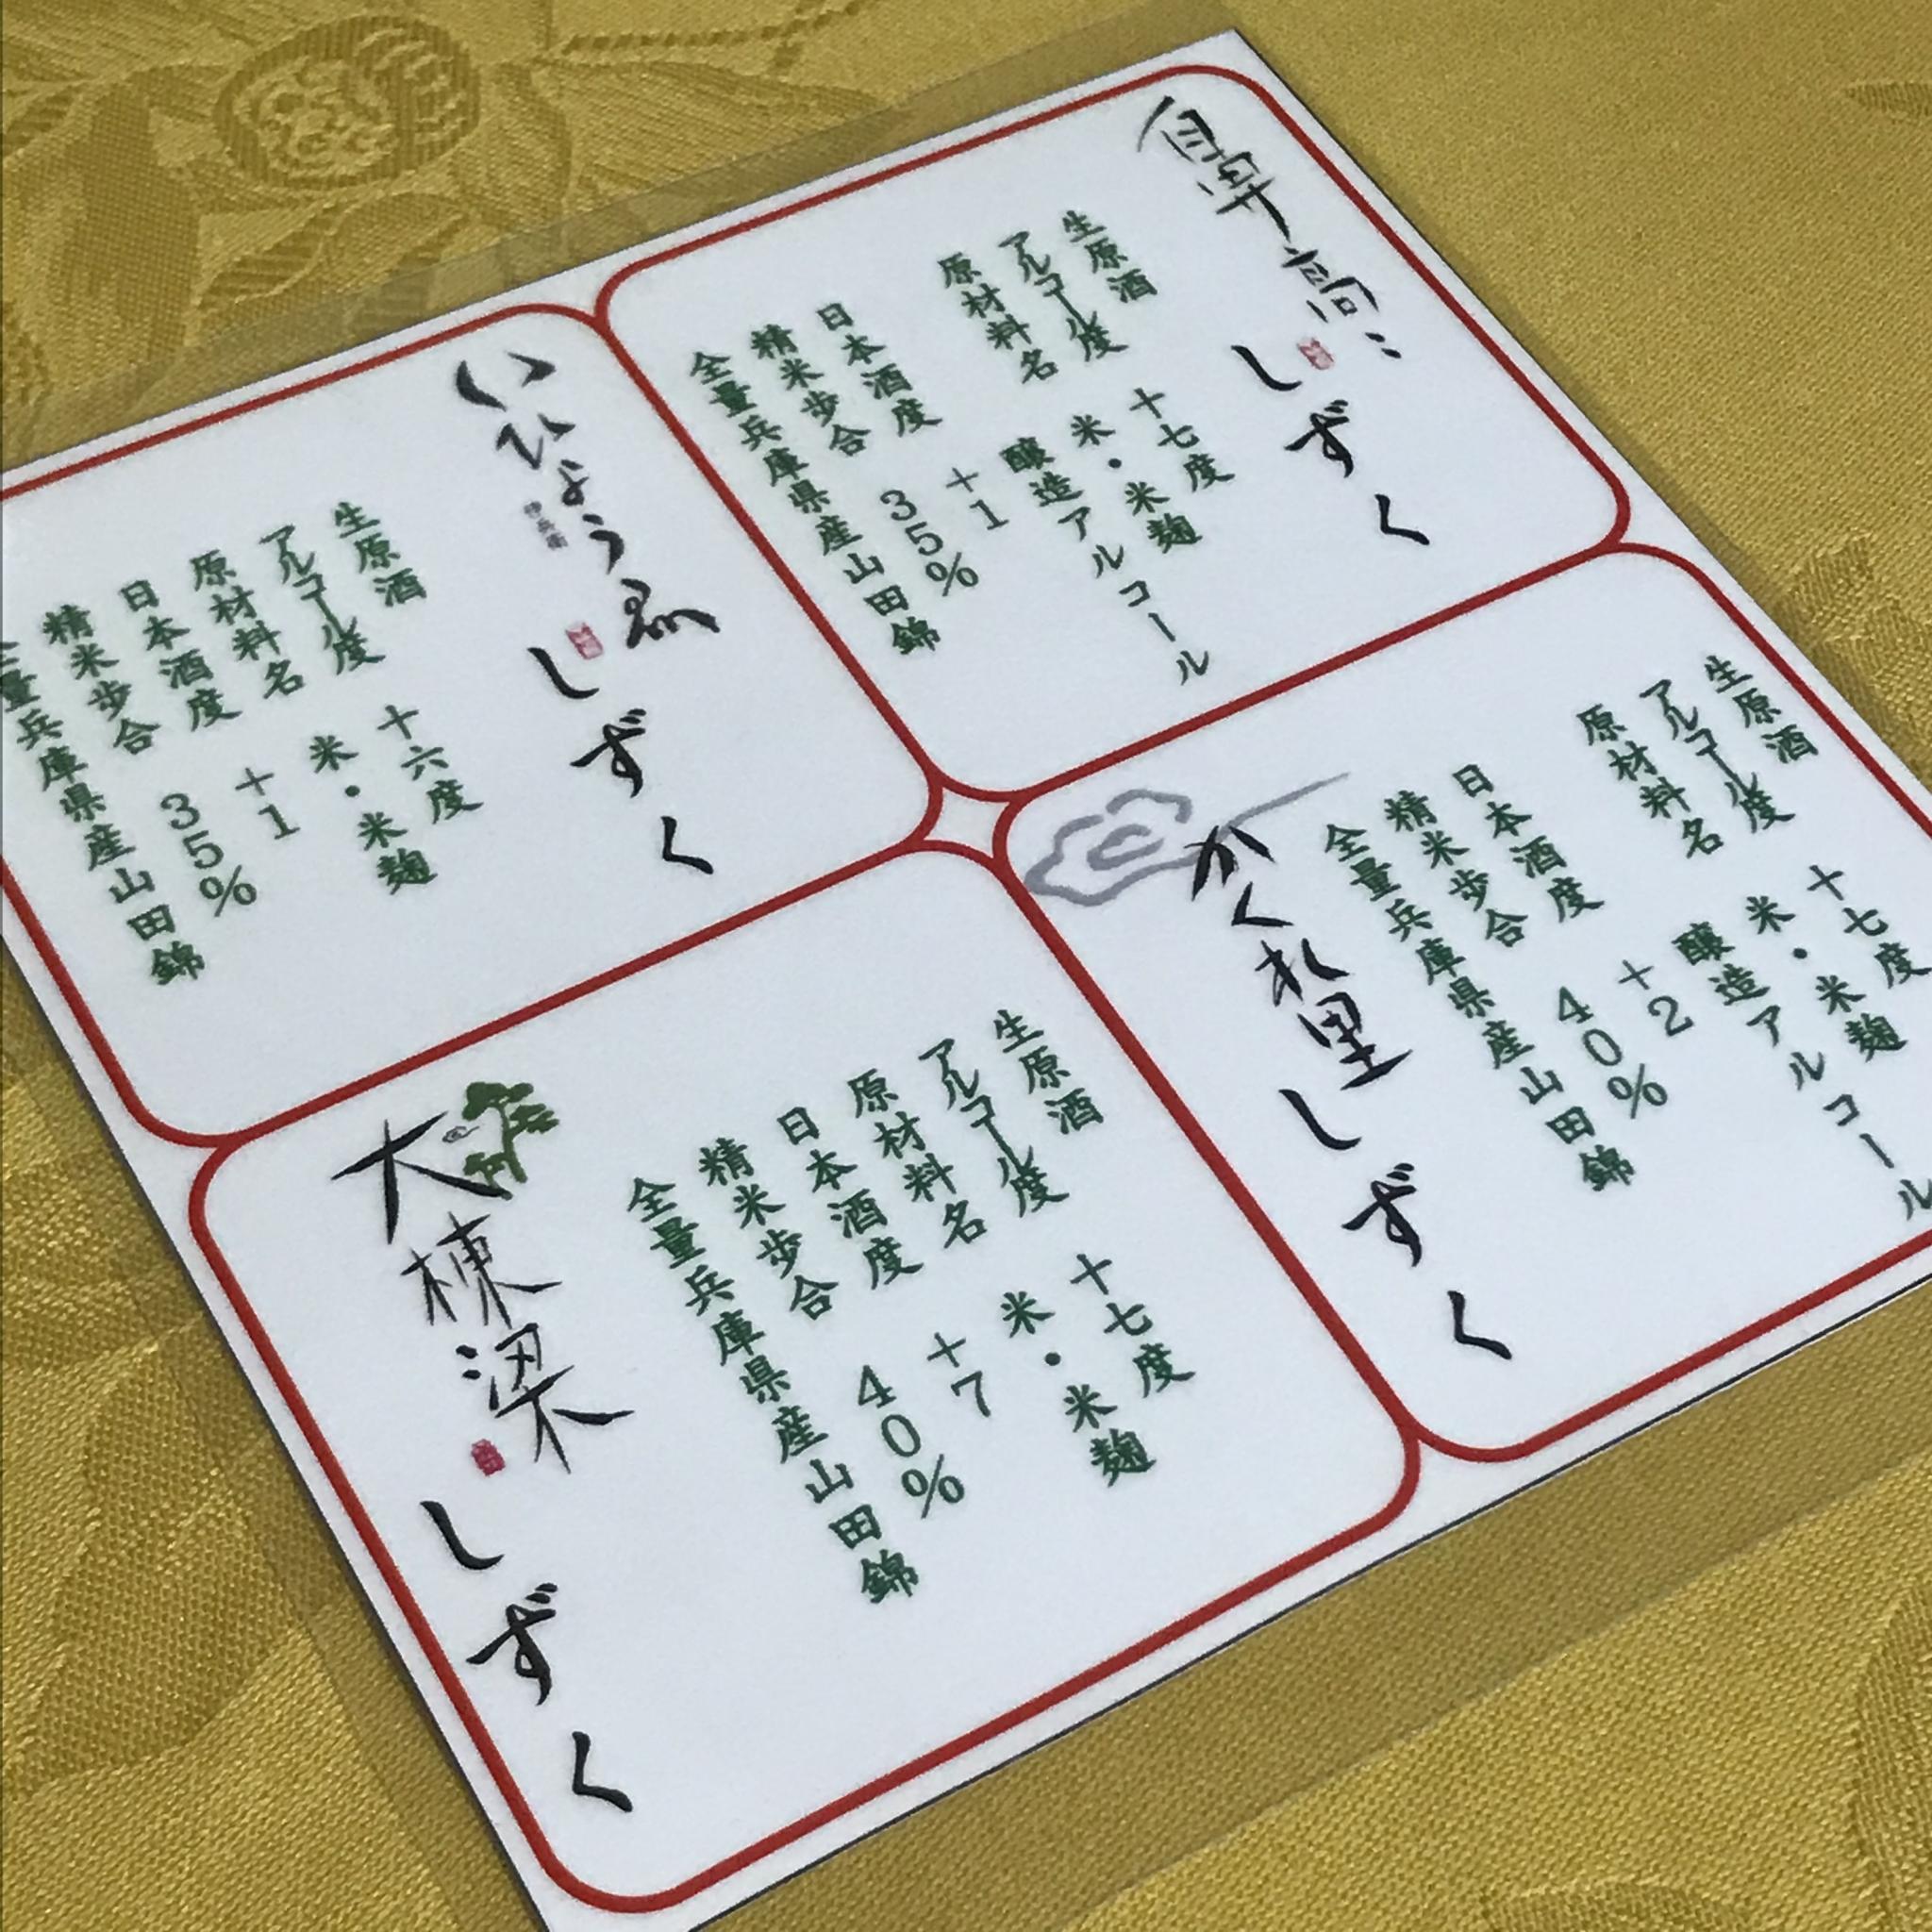 鼻高々
しずく
生原酒
アルコール度 十七度
原材料名 米・米麹
醸造アルコール
日本酒度 +1
精米歩合 35%
全量兵庫県産山田錦
いひょうゑ
伊兵衛
しずく
生原酒
アルコール度 十六度
原材料名 米・米麹
日本酒度 +1
精米歩合 35%
全量兵庫県産山田錦
生原酒
アルコール度 十七度
原材料名 米・米麹
醸造アルコール
日本酒度 +2
精米歩合 40%
全量兵庫県産山田錦
かくれ里しずく
生原酒
アルコール度 十七度
原材料名 米・米麹
日本酒度 +7
精米歩合 40%
全量兵庫県産山田錦
大棟梁
しずく